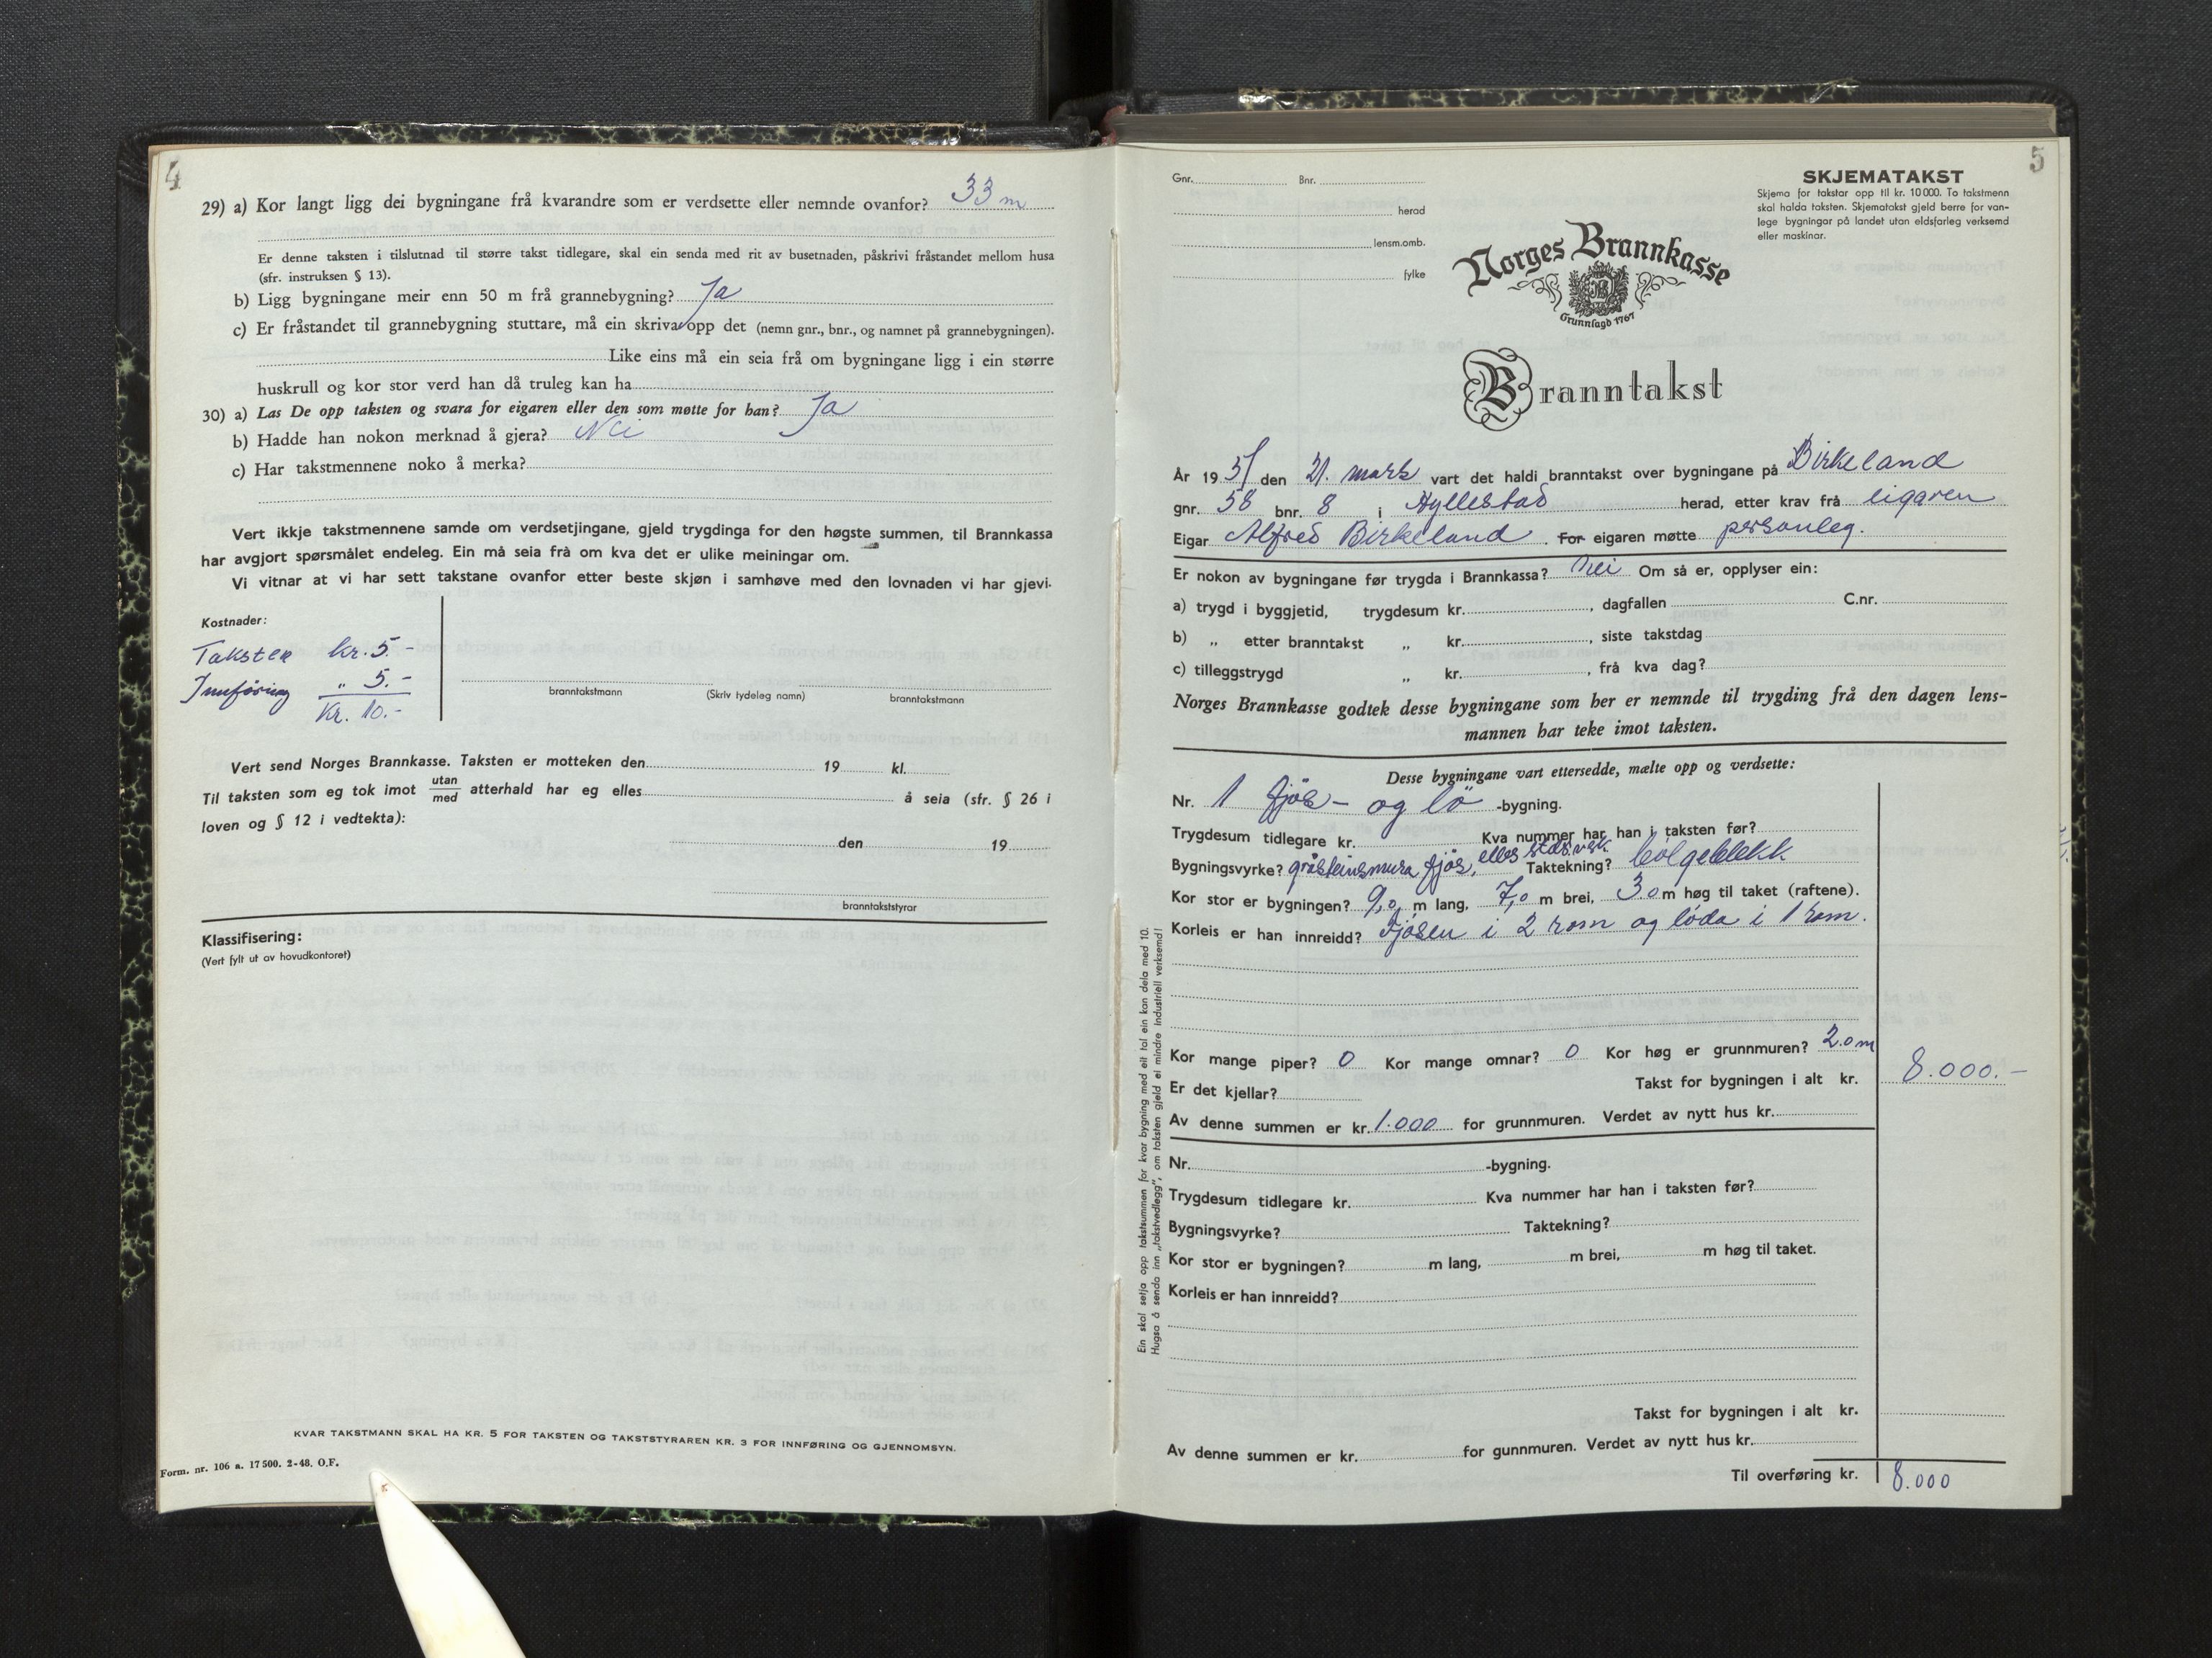 4
29) a) Kor langt ligg dei bygningane frå kvarandre som er verdsette eller nemnde ovanfor? 33 m
Er denne taksten i tilslutnad til større takst tidlegare, skal ein senda med rit av busetnaden, påskrivi fråstandet mellom husa
(sfr. instruksen § 13).
b) Ligg bygningane meir enn 50 m frå grannebygning? Ja
c) Er fråstandet til grannebygning stuttare, må ein skriva opp det (nemn gnr., bnr., og namnet på grannebygningen).
Like eins må ein seia frå om bygningane ligg i ein større
huskrull og kor stor verd han då truleg kan ha
30) a) Las De opp taksten og svara for eigaren eller den som møtte for han? Ja
b) Hadde han nokon merknad å gjera? Nei
c) Har takstmennene noko å merka?
Vert ikkje takstmennene samde om verdsetjingane, gjeld trygdinga for den høgste summen, til Brannkassa
har avgjort spørsmålet endeleg. Ein må seia frå om kva det er ulike meiningar om.
Vi vitnar at vi har sett takstane ovanfor etter beste skjøn i samhøve med den lovnaden vi har gjevi.
Kostnader:
Taksten kr. 5.-
Innføring " 5.-
Kr. 10.-
branntakstmann (Skriv tydeleg namn) branntakstmann
Vert send Norges Brannkasse. Taksten er motteken den 19 kl.
Til taksten som eg tok imot utan/med atterhald har eg elles å seia (sfr. § 26 i
loven og § 12 i vedtekta):
den 19
branntakststyrar
Klassifisering:
(Vert fylt ut av hovudkontoret)
KVAR TAKSTMANN SKAL HA KR. 5 FOR TAKSTEN OG TAKSTSTYRAREN KR. 3 FOR INNFØRING OG GJENNOMSYN.
Form. nr. 106 a. 17 500. 2-48. O.F.
5
Gnr. Bnr.
herad
lensm.omb.
fylke
SKJEMATAKST
Skjema for takstar opp til kr. 10 000. To takstmenn
skal halda taksten. Skjematakst gjeld berre for van-
lege bygningar på landet utan eldsfarleg verksemd
eller maskinar.
Norges Brannkasse
Grunnlagd 1767
Branntakst
År 1951 den 21. mars vart det haldi branntakst over bygningane på Birkeland
gnr. 58 bnr. 8 i Hyllestad herad, etter krav frå eigaren
Eigar Alfred Birkeland. For eigaren møtte personleg.
Er nokon av bygningane før trygda i Brannkassa? Nei Om så er, opplyser ein:
a) trygd i byggjetid, trygdesum kr. , dagfallen C.nr.
b) „ etter branntakst „ kr. , siste takstdag
c) tilleggstrygd „ kr. , frå kva dag?
Norges Brannkasse godtek desse bygningane som her er nemnde til trygding frå den dagen lens-
mannen har teke imot taksten.
Desse bygningane vart ettersedde, mælte opp og verdsette:
Nr. 1 fjös- og lö -bygning.
Trygdesum tidlegare kr. Kva nummer har han i taksten før?
Bygningsvyrke? gråsteinsmura fjös, elles stav.vrk Taktekning? bölgeblekk
Kor stor er bygningen? 9,0 m lang, 7,0 m brei, 3.0 m høg til taket (raftene).
Korleis er han innreidd? Fjösen i 2 rom og löda i 1 rom.
Kor mange piper? 0 Kor mange omnar? 0 Kor høg er grunnmuren? 2.0 m
Er det kjellar? Takst for bygningen i alt kr. 8.000.-
Av denne summen er kr. 1.000 for grunnmuren. Verdet av nytt hus kr.
Nr. -bygning.
Trygdesum tidlegare kr. Kva nummer har han i taksten før?
Bygningsvyrke? Taktekning?
Kor stor er bygningen? m lang, m brei, m høg til taket.
Korleis er han innreidd?
Takst for bygningen i alt kr.
Av denne summen er kr. for gunnmuren. Verdet av nytt hus kr.
Til overføring kr. 8.000
Ein skal setja opp takstsummen for kvar bygning med eit tal ein kan dela med 10.
Hugsa å senda inn „takstvedlegg", om taksten gjeld ei mindre industriell verksemd!